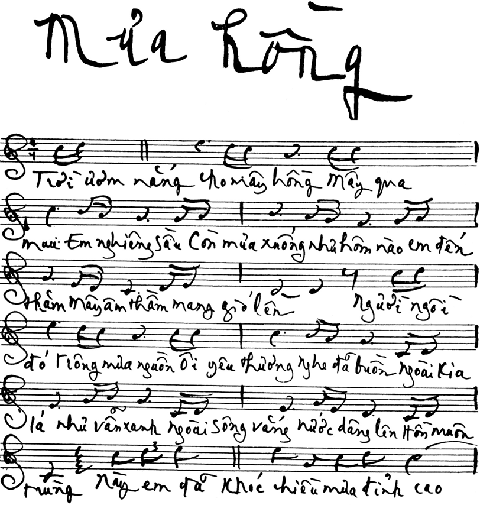 Mưa hồng
Trời ươm nắng cho mây hồng Mây qua
mau Em nghiêng sầu Còn mưa xuống như hôm nào em đến
thăm mây âm thầm mang gió lên Người ngồi
đó trông mưa nguồn Ơi yêu thương nghe đã buồn Ngoài kia
lá như vẫn xanh Ngoài sông vắng nước dâng lên Hồn muôn
trùng Này em đã khóc chiều mưa đỉnh cao